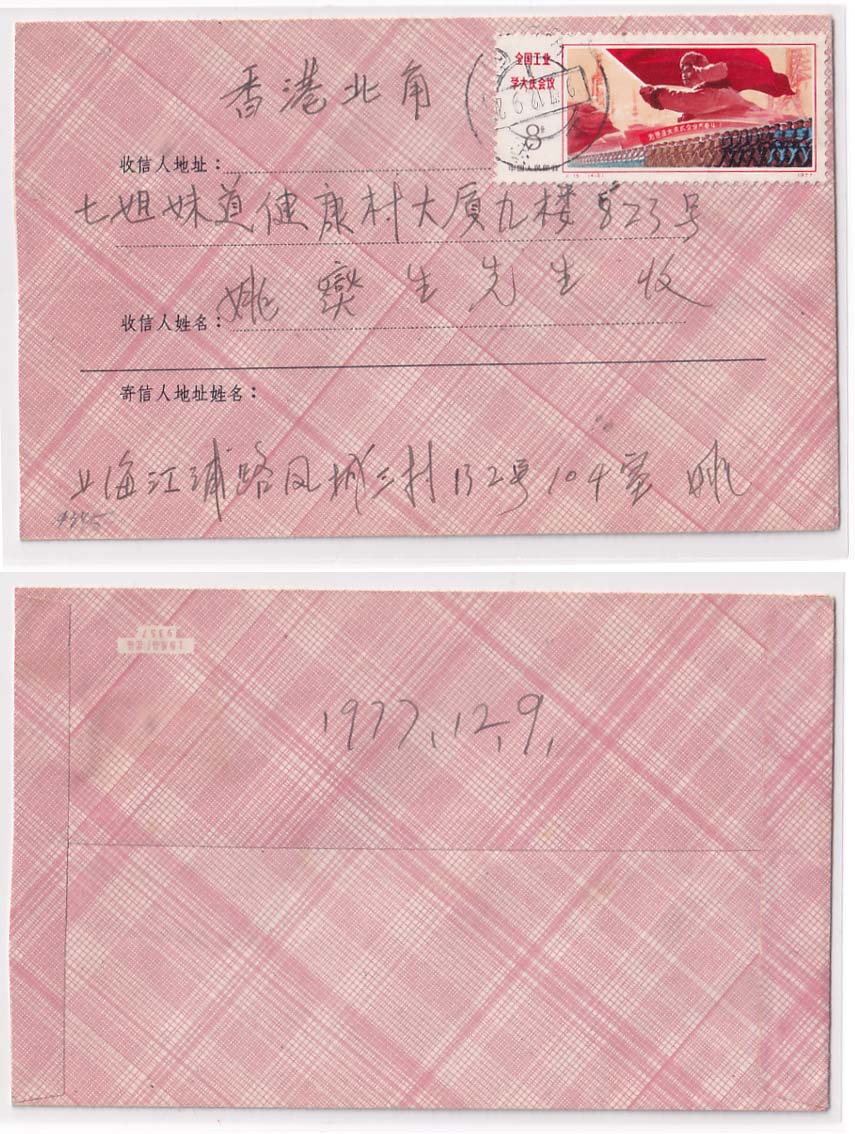 香港北角
全国工业
学大庆会议
8分
中国人民邮政
1977
收信人地址：
七姐妹道健康村大厦九楼23号
收信人姓名：
姚燮生先生 收
寄信人地址姓名：
上海江浦路凤城三村132号104室 姚
1977.12.9.